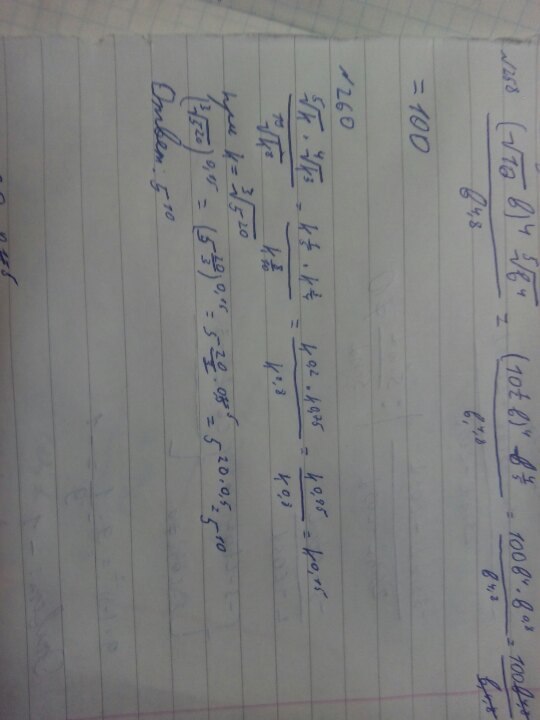 N258 (-√10 b)⁴ ⁵√b⁴ / b^4,8 = (10^½ b)⁴ b^⅘ / b^4,8 = 100b⁴ · b^0,8 / b^4,8 = 100b^4,8 / b^4,8
= 100
N260
⁵√k · ⁴√k³ / ¹⁰√k⁸ = k^⅕ · k^¾ / k^8/10 = k^0,2 · k^0,75 / k^0,8 = k^0,95 / k^0,8 = k^0,15
при k = ³√5²⁰
(³√5²⁰)^0,15 = (5^20/3)^0,15 = = 5^20·0,5 = 5¹⁰
Ответ: 5¹⁰